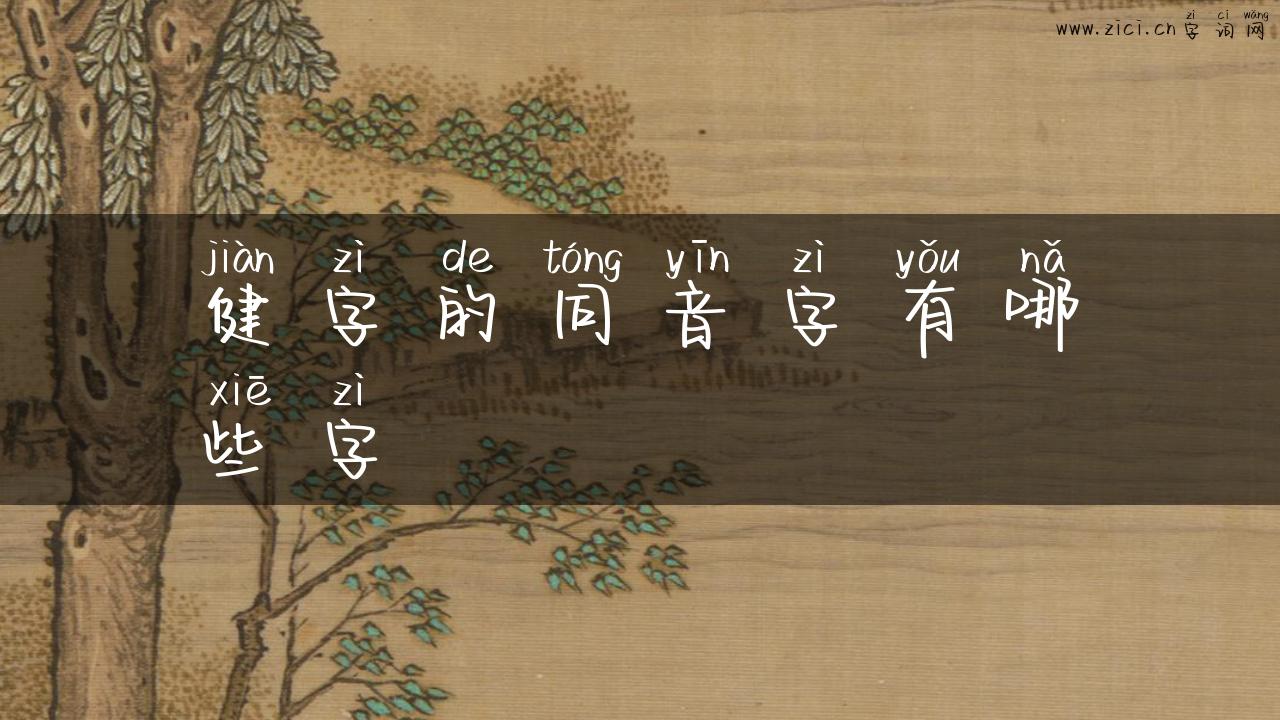 zì cí wǎng
www.zici.cn 字词网
jiàn zì de tóng yīn zì yǒu nǎ
健字的同音字有哪
xiē zì
些字